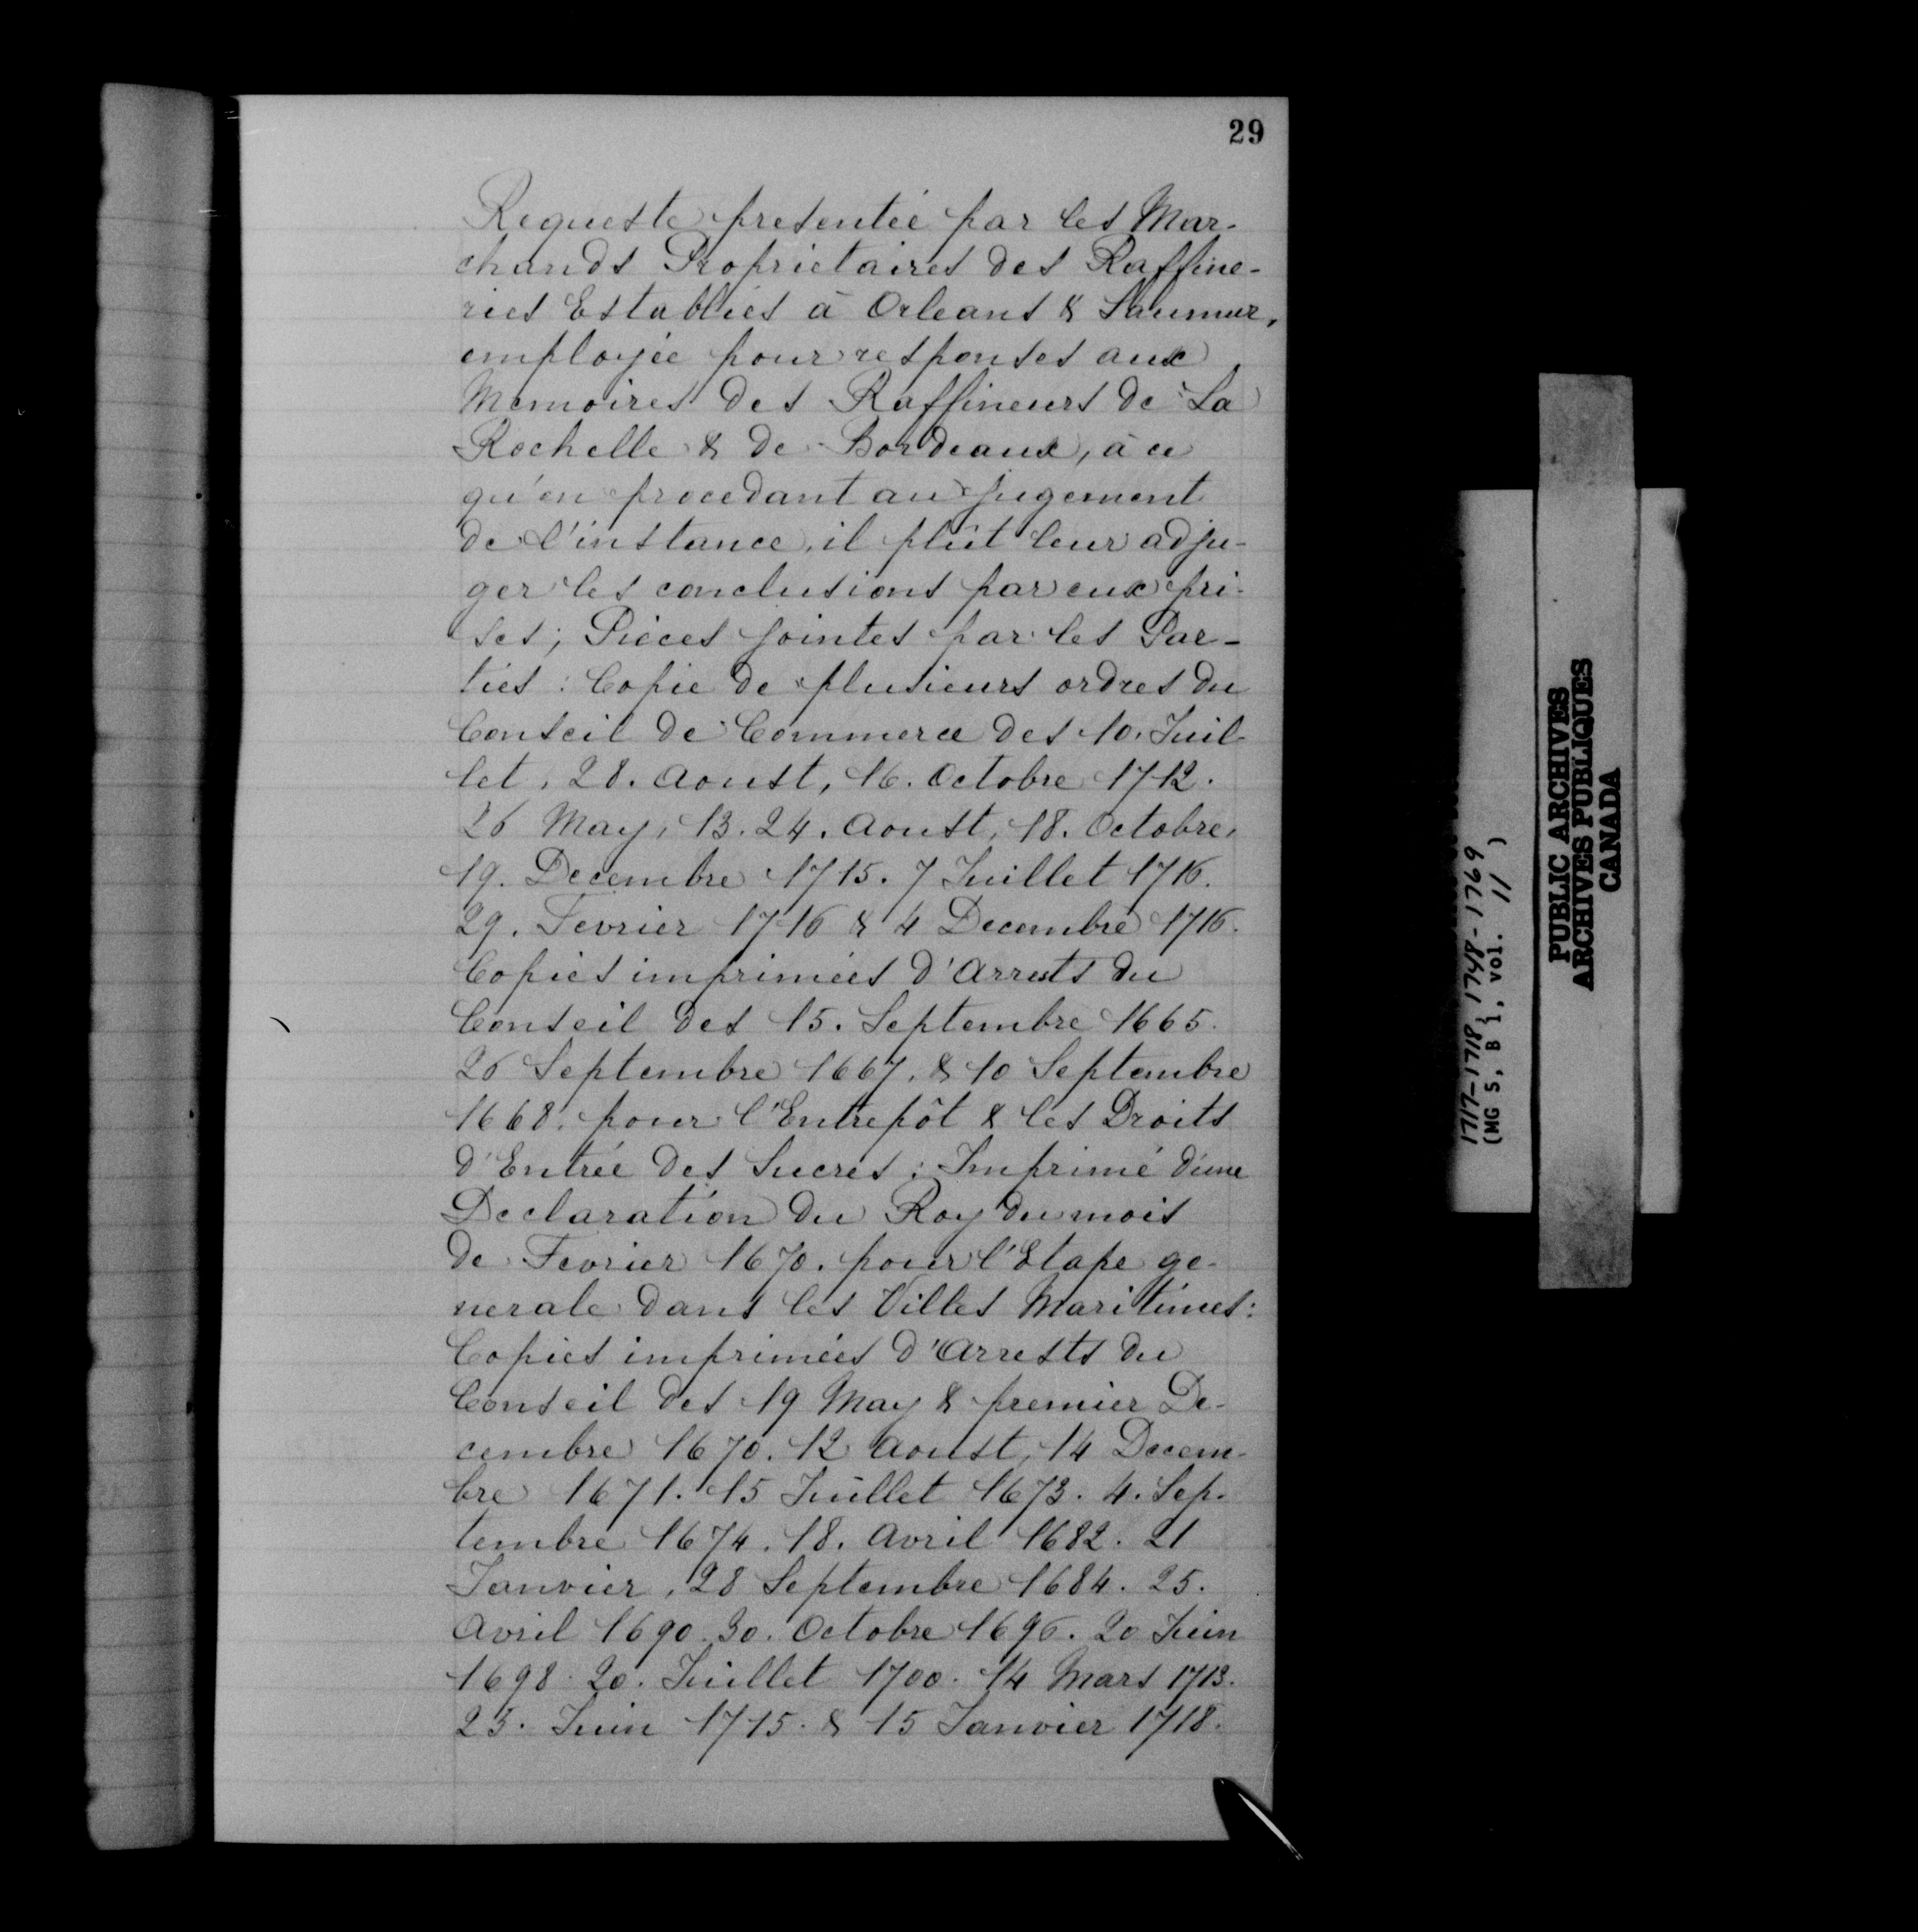 29
Requeste presentée par les Mar-
chands Proprietaires des Raffine-
ries Establies à Orleans & Saumur,
employée pour responses aux
Memoires des Raffineurs de La
Rochelle & de Bordeaux, à ce
qu'en procedant au Jugement
de l'instance, il plût leur adju-
ger les conclusions par eux pri-
ses; Pièces jointes par les Par-
ties: Copie de plusieurs ordres du
Conseil de Commerce des 10. Juil-
let, 28. Aoust, 16. Octobre 1712.
26 May, 13. 24. Aoust, 18. Octobre,
19. Decembre 1715. 7 Juillet 1716.
29. Fevrier 1716 & 4 Decembre 1716.
Copies imprimées d'Arrests du
Conseil des 15. Septembre 1665.
26 Septembre 1667. & 10 Septembre
1668. pour l'Entrepôt & les Droits
d'Entrée des Sucres: Imprimé d'une
Declaration du Roy du mois
de Fevrier 1670. pour l'Etape ge-
nerale dans les Villes Maritimes:
Copies imprimées d'Arrests du
Conseil des 19 May & premier De-
cembre 1670. 12 Aoust, 14 Decem-
bre 1671. 15 Juillet 1673. 4. Sep-
tembre 1674. 18. Avril 1682. 21
Janvier, 28 Septembre 1684. 25.
Avril 1690. 30. Octobre 1696. 20 Juin
1698. 20. Juillet 1700. 14 Mars 1713.
25. Juin 1715. & 15 Janvier 1718.
1717-1718, 1748-1769
(MG 5, B 1, vol. 11 )
PUBLIC ARCHIVES
ARCHIVES PUBLIQUES
CANADA